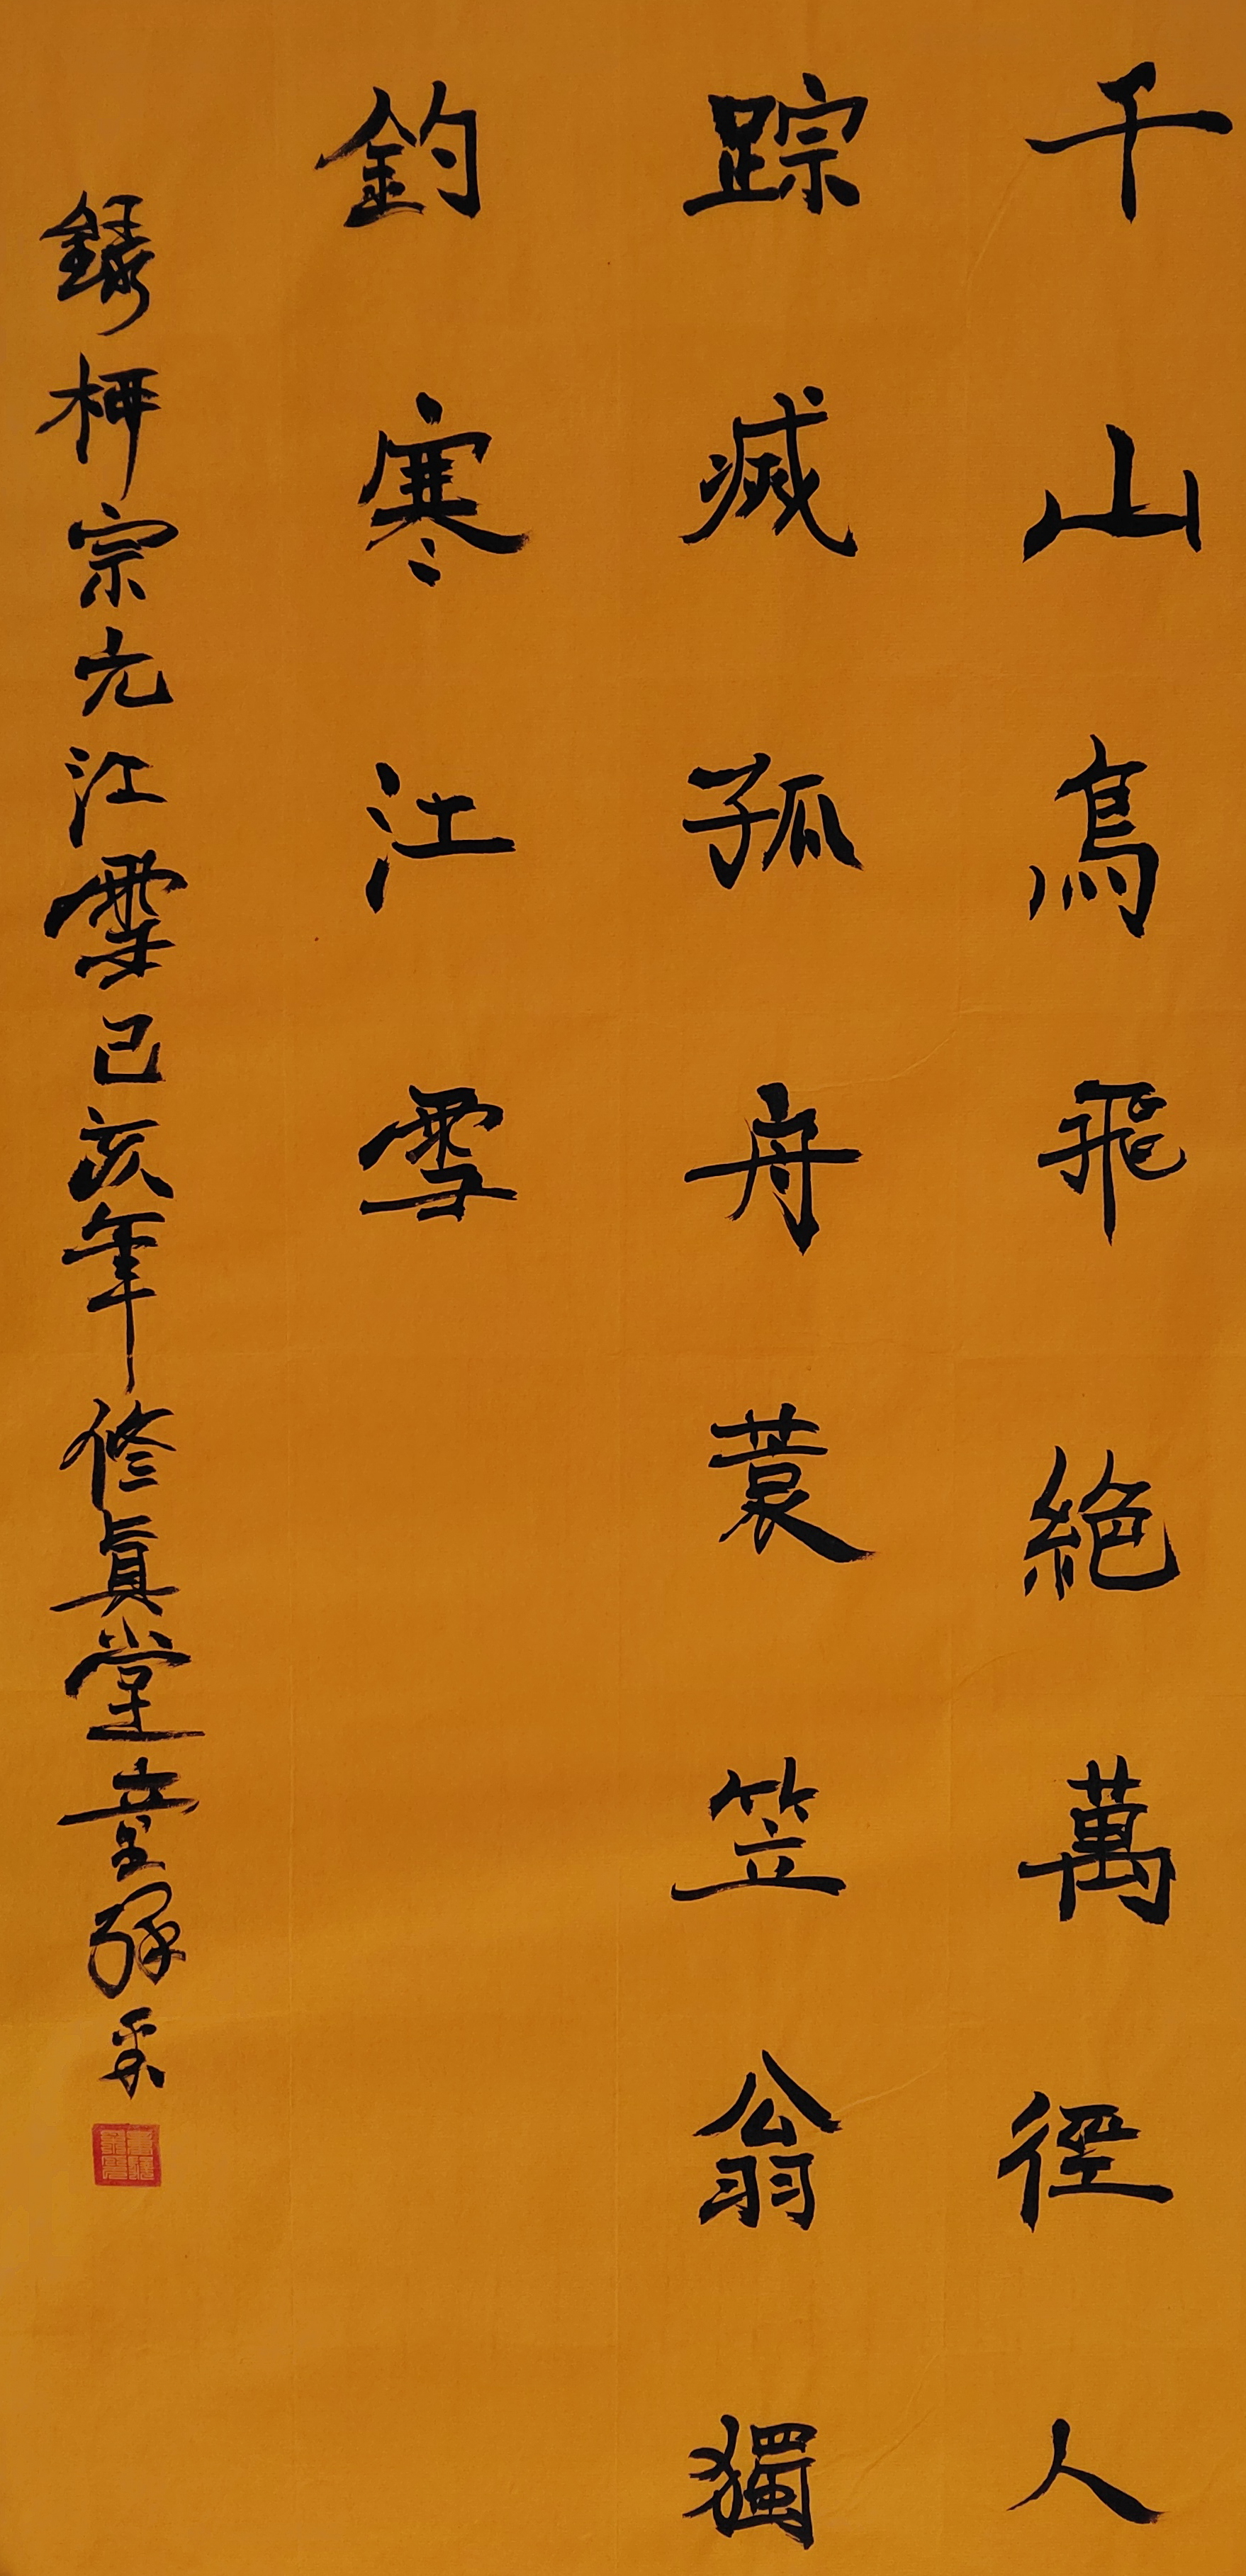 千山鳥飛絕萬徑人
踪滅孤舟蓑笠翁獨
釣寒江雪
錄柳宗元江雪己亥年修真堂童